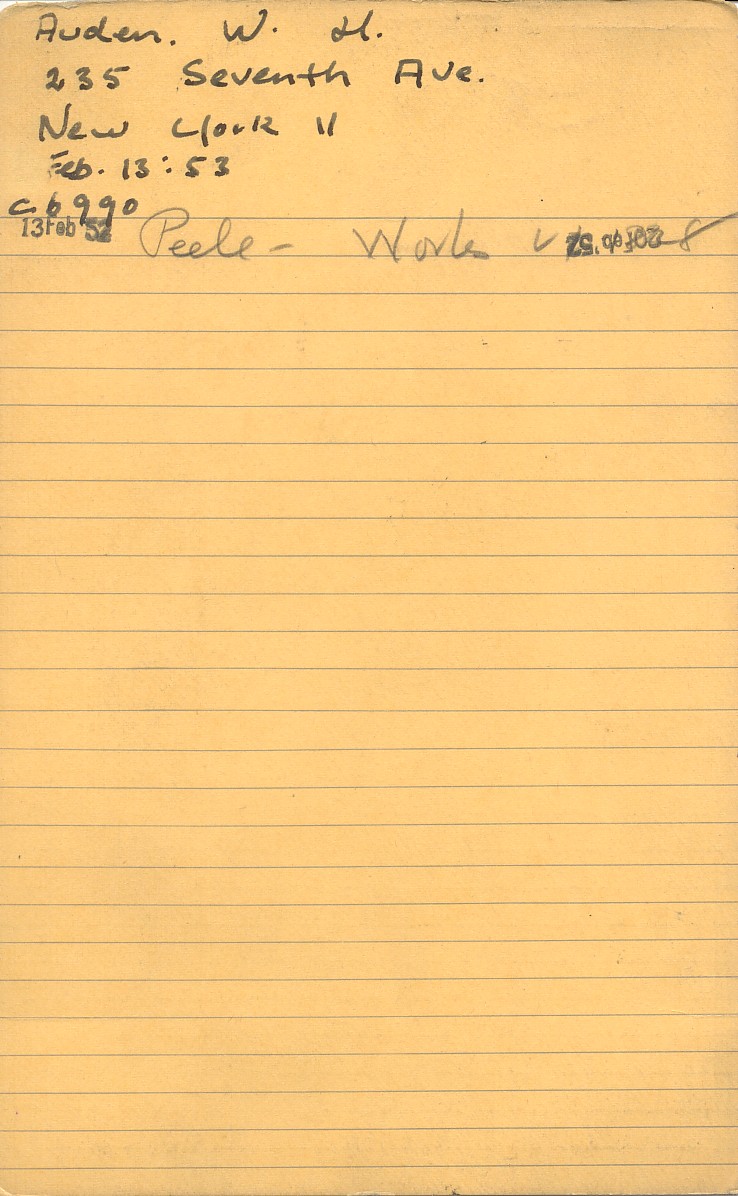 Auden. W. H.
235 Seventh Ave.
New York 11
Feb. 13:53
c6990
13 Feb 52 Peele - Works 20 Feb '52